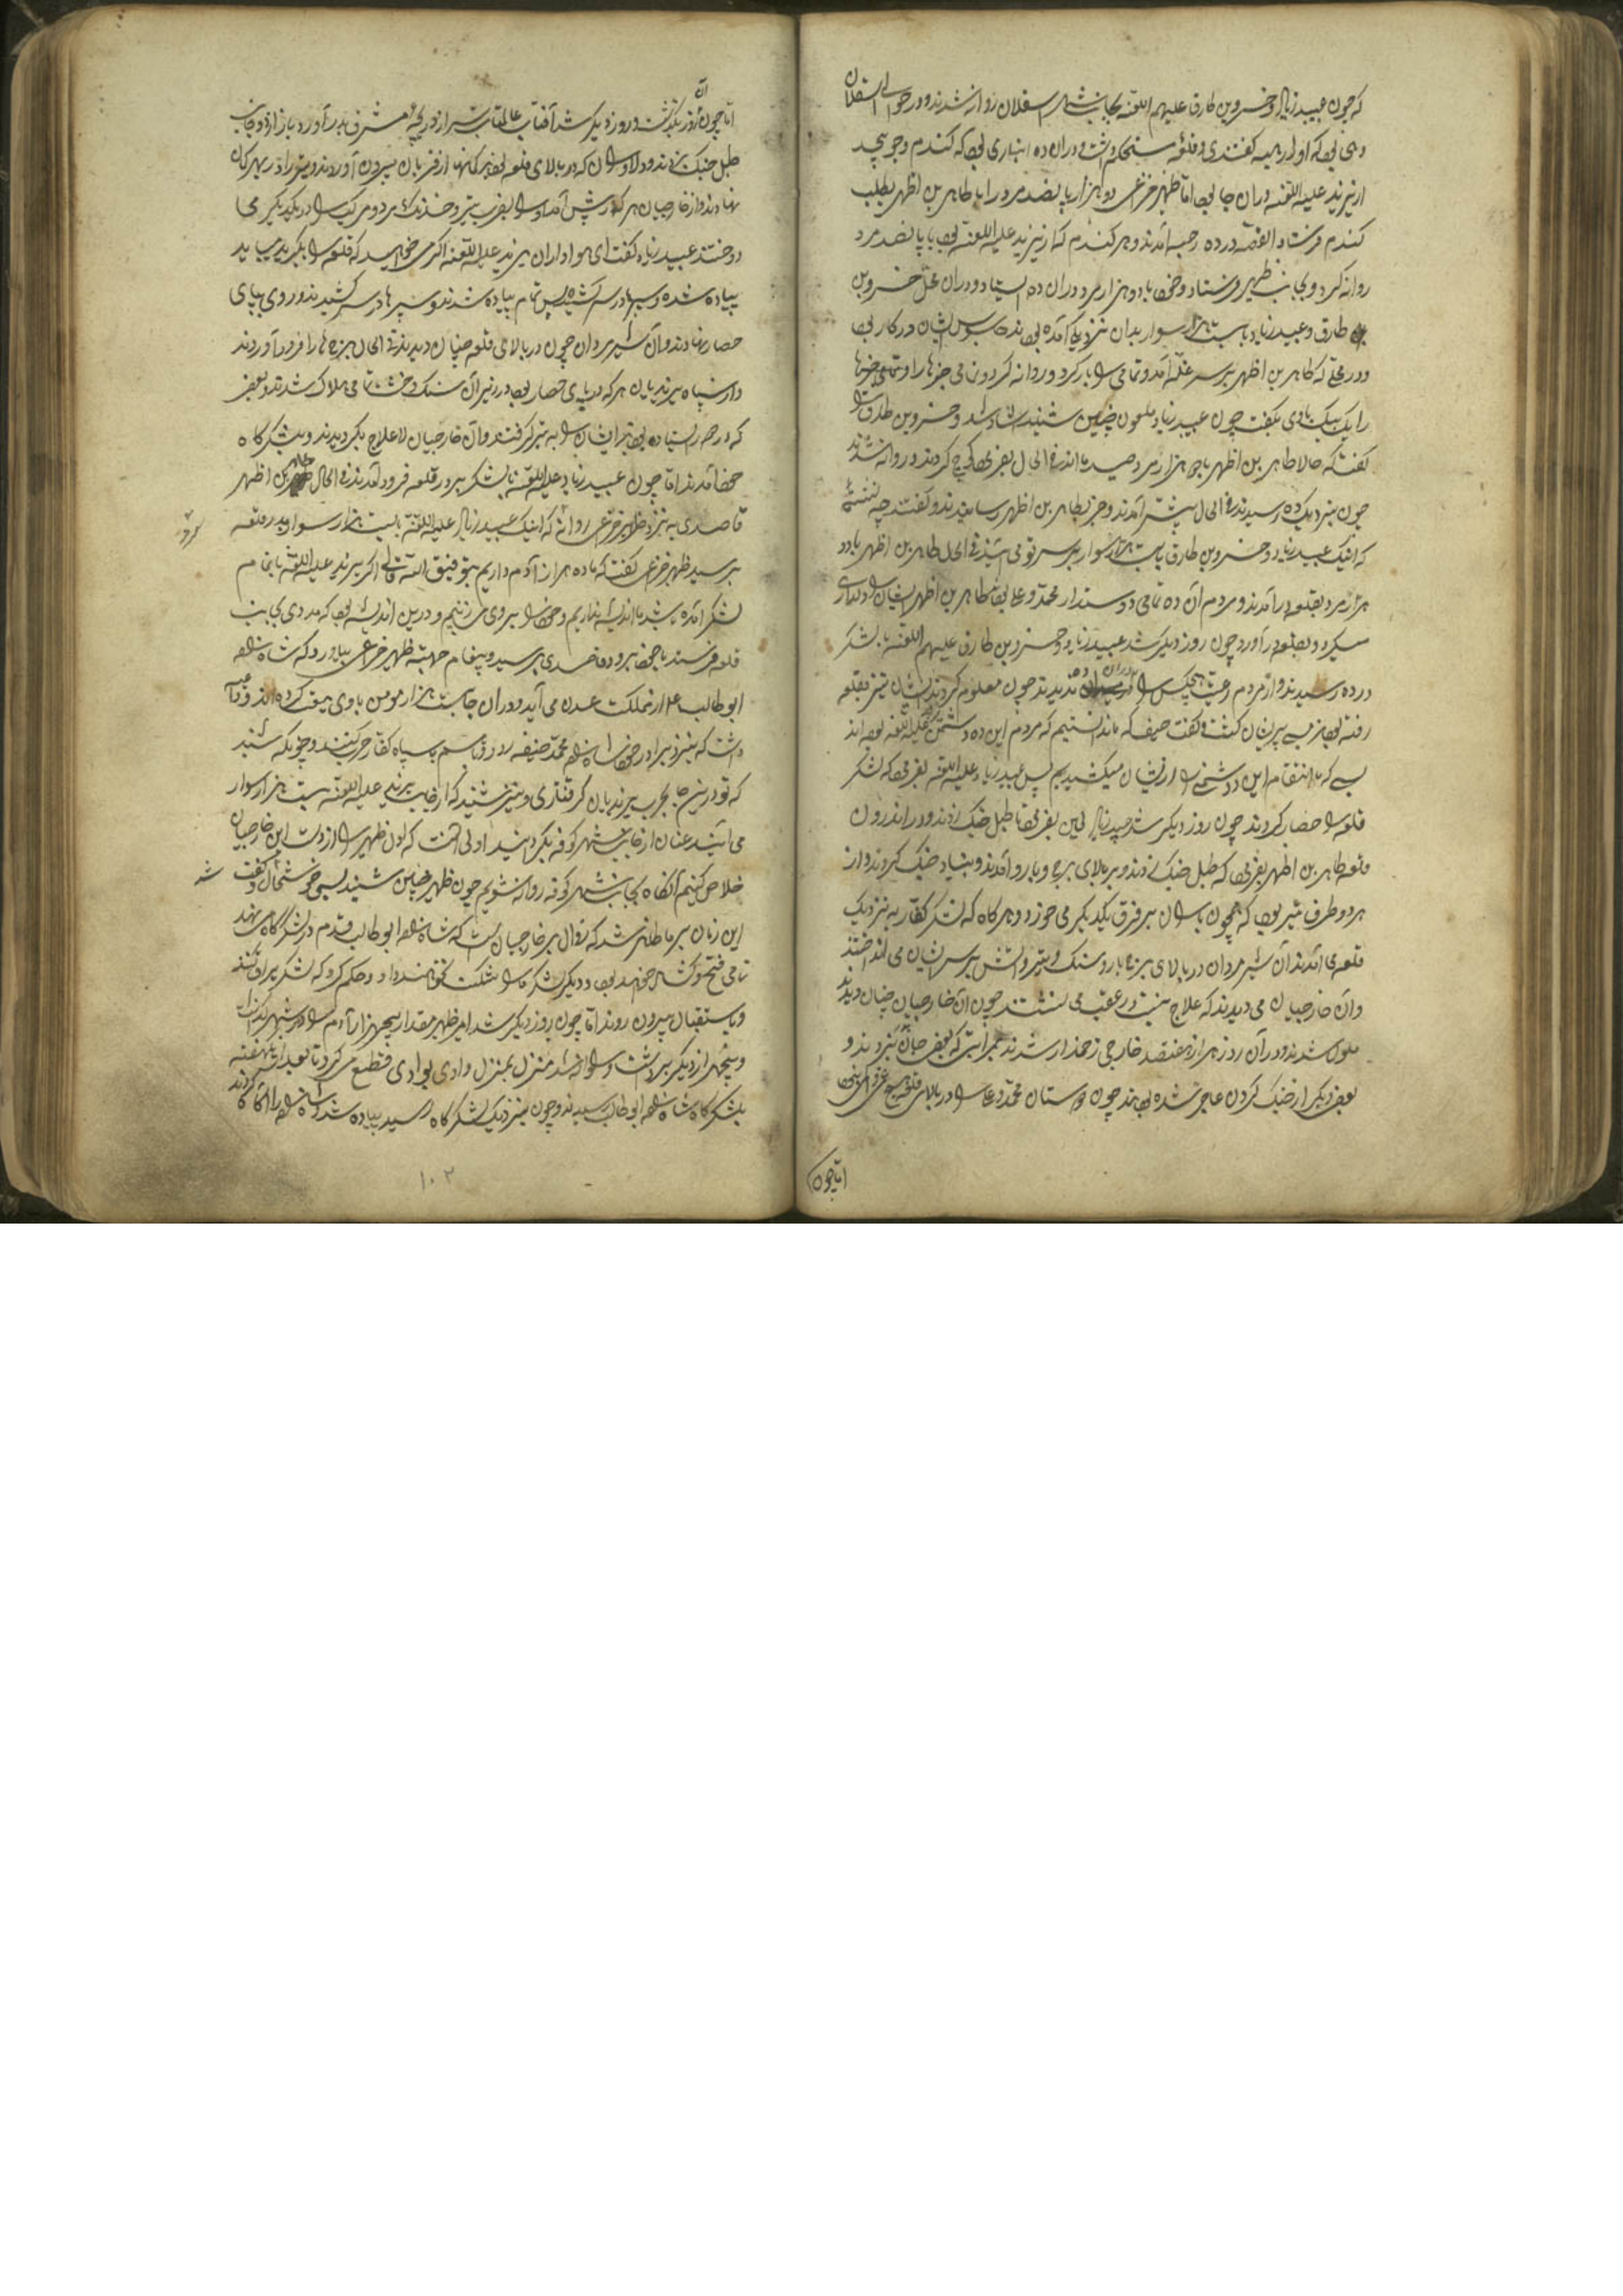 که چون عبید زیاد و خسروین طارق علیهم اللعنه بجانب شهر اسقلان روانه شدند و در حوالی اسقلان
دهی بود که او را رحبه گفتندی و قلعه مستحکم داشت و دران ده انباری بود که گندم و جو بیحد
از یزید علیه اللعنه دران جا بود اما ظهیر خزاعی دو هزار پانصد مرد را با طاهر بن اظهر بطلب
گندم فرستاد القصه در ده رحبه آمدند و هر گندم که از یزید علیه اللعنه بود با پانصد مرد
روانه کرد و بجانب ظهیر فرستاد و خود با دو هزار مرد دران ده ایستاد و دران محل خسروین
طارق و عبید زیاد با بیست هزار سوار بدان نزدیک آمده بودند جاسوس ایشان در کار بود
و در محلی که طاهر بن اظهر بر سر غله آمد و تمامی را بار کرد و روانه کرد و تمامی خبرها را
را یک بیک با وی بگفت چون عبید زیاد ملعون چنین شنید شاد شد و خسروین طارق را
گفت که حالا طاهر بن اظهر با دو هزار مرد صید ما اند فی الحال بفرمود که کوچ کردند و روانه شدند
چون نزدیک ده رسیدند فی الحال پیشتر آمدند و خبر بطاهر بن اظهر رسانیدند و گفتند چه نشسته
که اینک عبید زیاد و خسروین طارق با بیست هزار سوار بر سر تو می آیند فی الحال طاهر بن اظهر با دو
هزار مرد بقلعه در آمدند و مردم آن ده تمامی دوستدار محمد و علی بودند طاهر بن اظهر ایشان را دلداری
میکرد و بقلعه در آورد چون روز دیگر شد عبید زیاد و خسروین طارق علیهم اللعنه با لشکر
در ده رسیدند و از مردم رعیت هیچکس را دران ده ندیدند چون معلوم کردند ایشان نیز بقلعه
رفته بودند بسی پریشان گشت و گفت حیف که ما ندانستیم که مردم این ده دشمن یزید علیه اللعنه بوده اند
بسی که ما انتقام این دشمنی را از ایشان میکشیدیم پس عبید زیاد علیه اللعنه بفرمود که لشکر
قلعه را حصار کردند چون روز دیگر شد عبید زیاد لعین بفرمود تا طبل جنگ زدند و در اندرون
قلعه طاهر بن اظهر بفرمود که طبل جنگ زدند و بر بالای برج و بارو آمدند و بنیاد جنگ کردند و از
هر دو طرف تیر بود که همچون باران بر فرق یکدیگر می خورد و هرگاه که لشکر کفار به نزدیک
قلعه می آمدند آن شیر مردان در بالای برج و بارو سنگ و تیر و آتش بر سر ایشان می انداختند
و آن خارجیان می دیدند که علاج نیست در عقب می نشستند چون آن خارجیان چنان دیدند
ملول شدند و در آن روز هزار و هفتصد خارجی زخمدار شدند بمراتبی که بعضی جان نبردند و
بعضی دیگر از جنگ کردن عاجز شده بودند چون دوستان محمد و علی را در بالای قلعه هیچ غمی نبود
اما چون
اما چون آن روز بگذشت و روز دیگر شد آفتاب عالمتاب سر از دریچه مشرق بدر آورد باز از دو جانب
طبل جنگ بزدند و دلاوران که در بالای قلعه بودند کمانها از قربان بیرون آوردند و تیر را در بحر کمان
نهادند و از خارجیان هر که در پیش آمد او را بضرب تیر و خدنگ مرد و مرکب را در یکدیگر می
دوختند عبید زیاد گفت ای هواداران یزید علیه اللعنه اگر می خواهید که قلعه را بگیرید میباید
پیاده شده و سپرها در سر کشیده پس تمام پیاده شدند و سپرها در سر کشیدند و روی بپای
حصار نهادند و آن شیر مردان چون در بالای قلعه چنان دیدند فی الحال برجها را فرود آوردند
و از سپاه یزیدیان هر که در پای حصار بود در زیر آن سنگ و خشت تمامی هلاک شدند و بعضی
که دورتر ایستاده بودند ایشان را به تیر گرفتند و آن خارجیان لاعلاج بگردیدند و بلشکرگاه
خود آمدند اما چون عبید زیاد علیه اللعنه با لشکر بر در قلعه فرود آمدند فی الحال طاهر بن اظهر
قاصدی به نزد ظهیر خزاعی روانه کرد که اینک عبید زیاد علیه اللعنه با بیست هزار سوار بدر قلعه
برسید ظهیر خزاعی گفت که ما ده هزار آدم داریم بتوفیق الله تعالی اگر یزید علیه اللعنه با تمام
لشکر آمده باشد ما اندیشه نداریم و خود را بر وی می زنیم و درین اندیشه بود که مددی بجانب
قلعه فرستد یا خود برود قاصدی برسید و پیغام جهت ظهیر خزاعی بیاورد که شاهزاده
ابو طالب علی از مملکت عدن می آید و دران جا بیست هزار مومن با وی بیعت کرده اند و عزم آن
داشت که بنزد برادر خود شاهزاده محمد حنیفه رود و قاسم با سپاه کفار حرب کنند و چونکه شنید
که تو درین جا بحرب یزیدیان گرفتاری و نیز شنید که از جانب یزید علیه اللعنه بیست هزار سوار
می آیند عنان از جانب شهر کوفه بگردانید اولی آنست که اول ظهیر را از دست این خارجیان
خلاص کنیم آنگاه بجانب شهر کوفه روانه شویم چون ظهیر چنین شنید بسی خوشحال شد و گفت
این زمان بر ما ظاهر شد که زوال بر خارجیان است که شاهزاده ابو طالب قدم در لشکرگاه نهد
تمامی فتح و گشایش خواهد بود و دیگر لشکر ما را شکست نخواهند داد و حکم کرد که لشکر یراق کنند
و باستقبال بیرون روند اما چون روز دیگر شد امیر ظهیر مقدار پنجهزار آدم را در شهر بگذاشت
و پنجهزار دیگر برداشت و روانه شد منزل بمنزل وادی بوادی قطع می کرد تا بعد از یک هفته
بلشکرگاه شاهزاده ابو طالب رسیدند و چون نزدیک لشکرگاه رسید پیاده شد و شاهزاده را آگاه کردند
۱۰۲